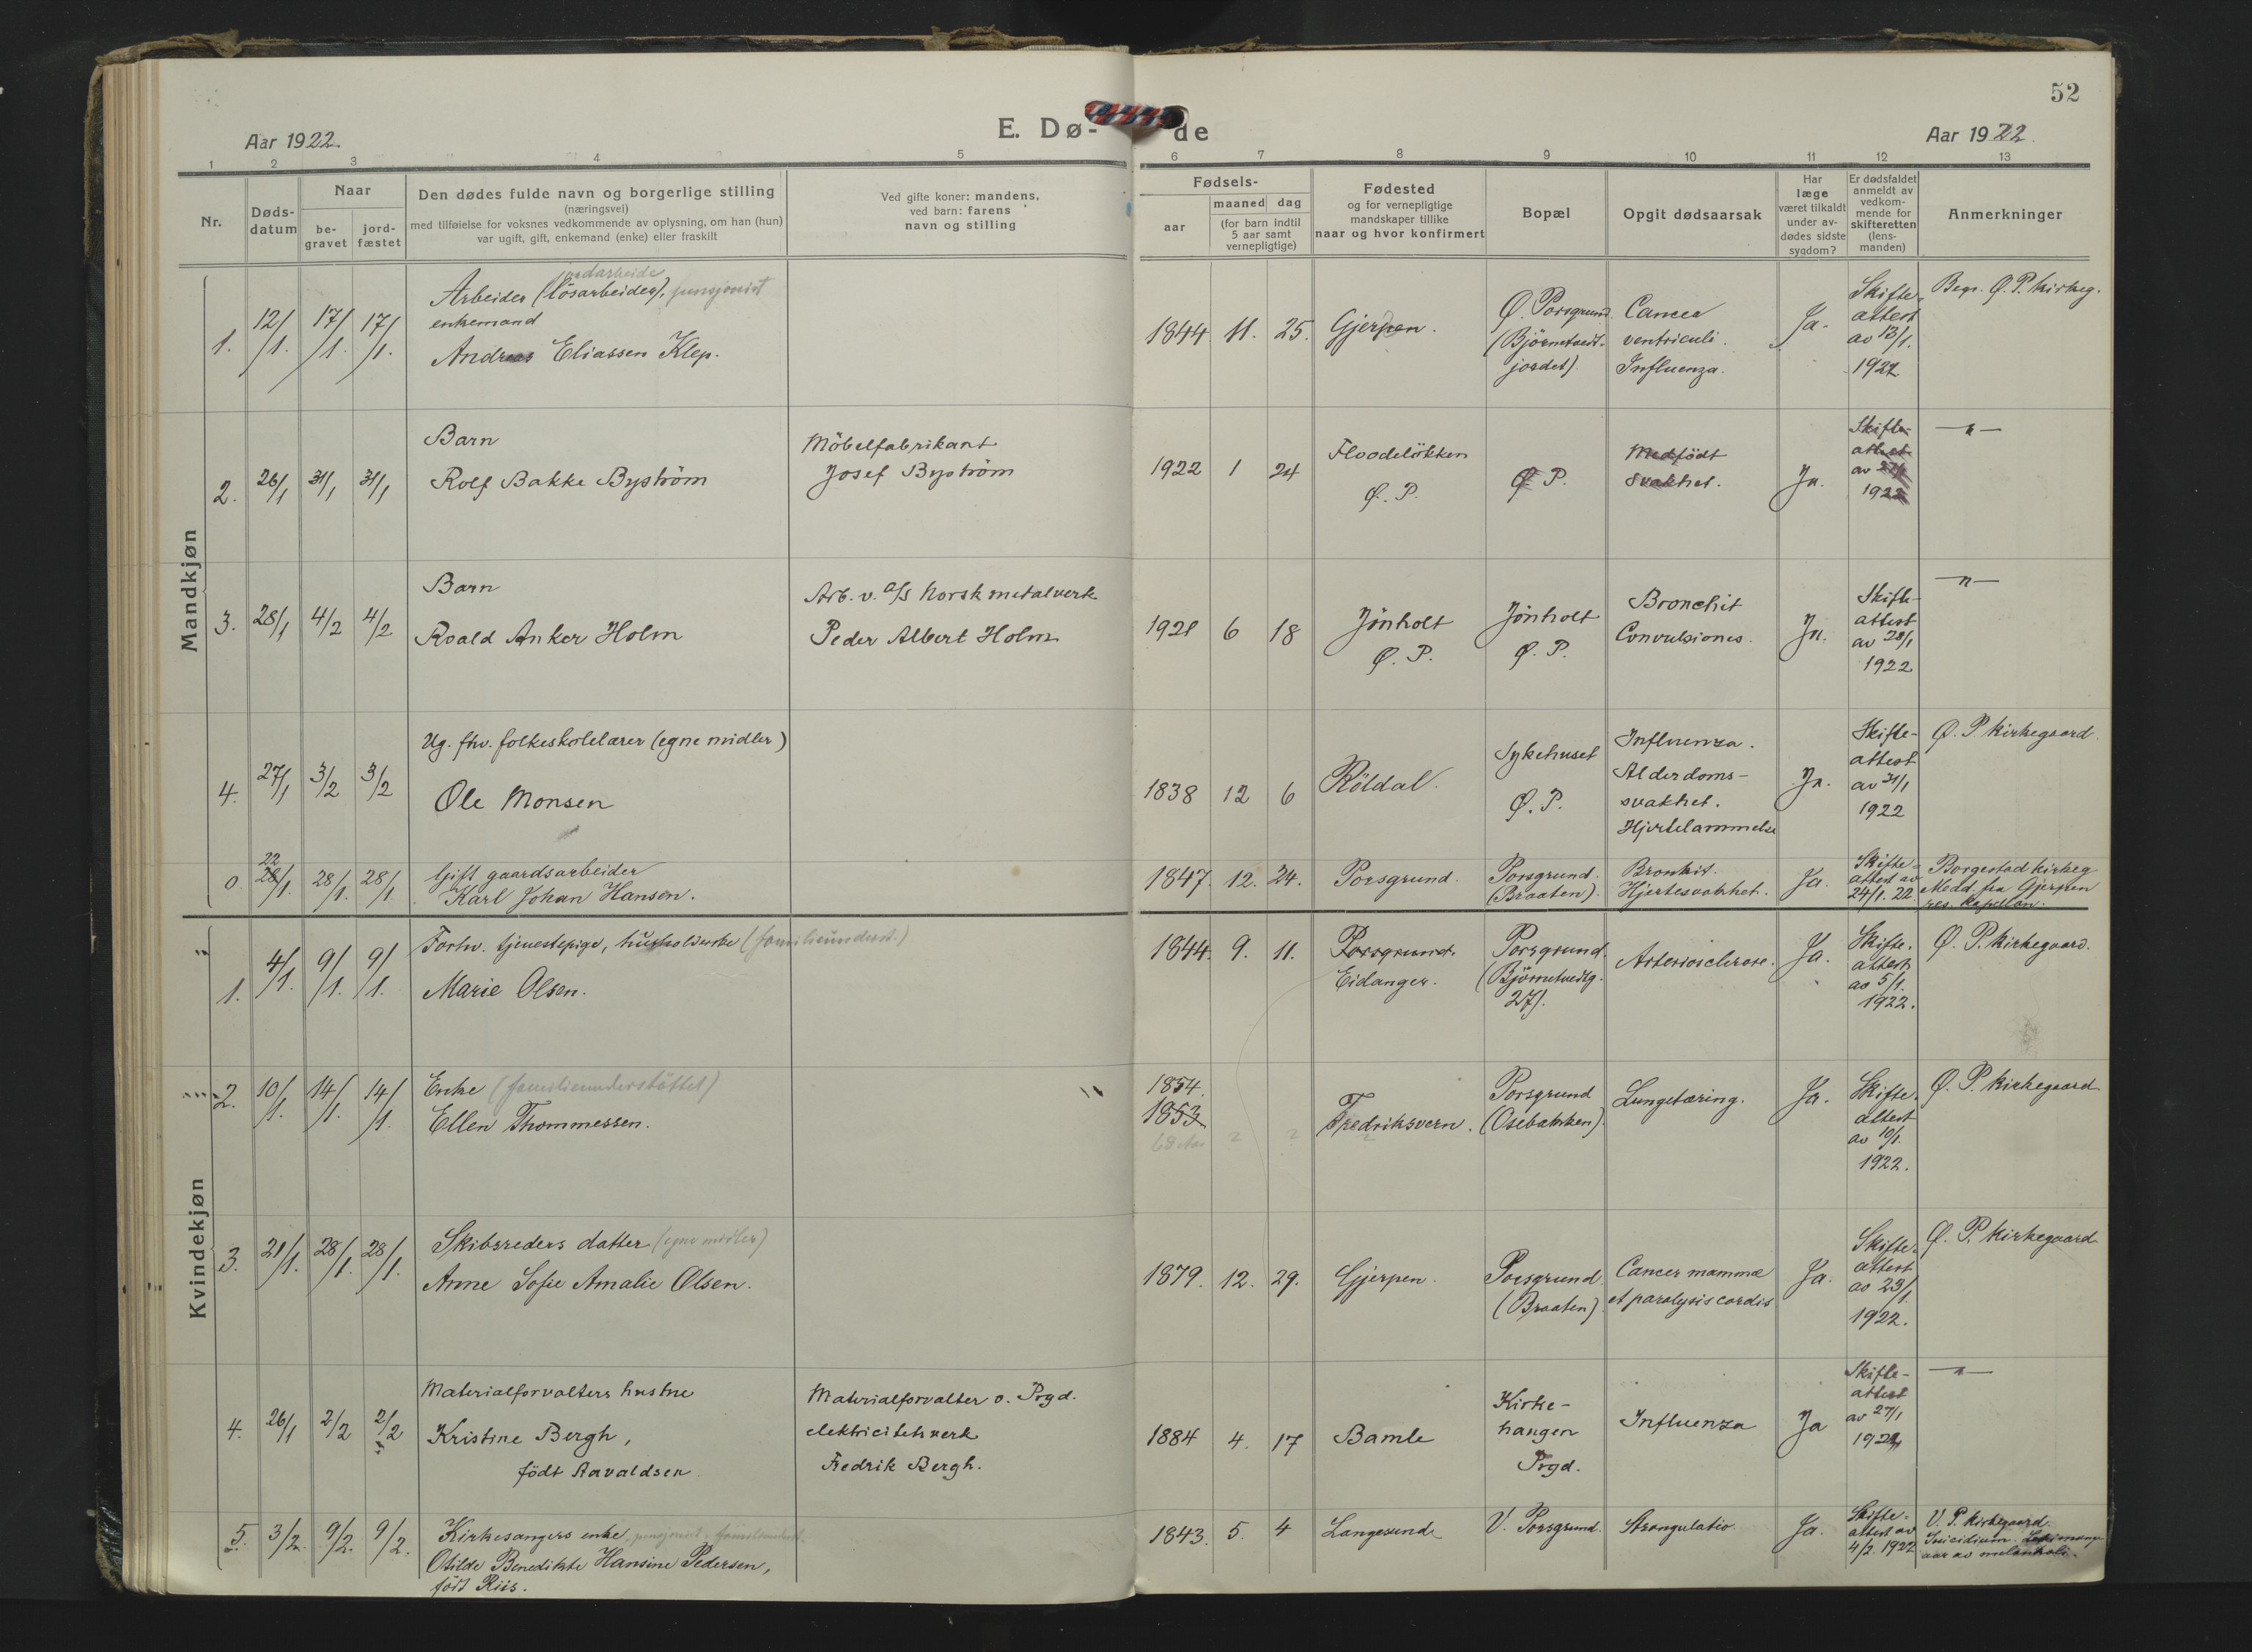 52
E. Dø- de
Aar 1922.
Aar 1922.
1 2 3 4 5 6 7 8 9 10 11 12 13
Nr.
Døds-
datum
Naar
be-
gravet
jord-
fæstet
Den dødes fulde navn og borgerlige stilling
(næringsvei)
med tilføielse for voksnes vedkommende av oplysning, om han (hun)
var ugift, gift, enkemand (enke) eller fraskilt
Ved gifte koner: mandens,
ved barn: farens
navn og stilling
Fødsels-
aar
maaned dag
(for barn indtil
5 aar samt
vernepligtige)
Fødested
og for vernepligtige
mandskaper tillike
naar og hvor konfirmert
Bopæl
Opgit dødsaarsak
Har
læge
været tilkaldt
under av-
dødes sidste
sygdom?
Er dødsfaldet
anmeldt av
vedkom-
mende for
skifteretten
(lens-
manden)
Anmerkninger
Mandkjøn
1. 12/1. 17/1. 17/1.
Arbeider (løsarbeider), pensjonist
enkemand
Andreas Eliassen Klep.
1844. 11. 25. Gjerpen.
Ø. Porsgrund
(Bjørntvedt-
jordet)
Cancer
ventriculi.
Influenza.
Ja.
Skifte-
attest
av 13/1.
1922.
Begr. Ø. P. kirkeg.
2. 26/1 31/1 31/1
Barn
Rolf Bakke Byström
Möbelfabrikant
Josef Byström
1922 1 24
Floodeløkken
Ø. P.
Ø. P.
Medfödt
svakhet.
Ja.
Skifte-
attest
av 27/1
1922
—"—
3. 28/1 4/2 4/2
Barn
Roald Anker Holm
Arb. v. A/S Norsk metalverk
Peder Albert Holm
1921 6 18
Jönholt
Ø. P.
Jönholt
Ø. P.
Bronchit
Convulsiones.
Ja.
Skifte-
attest
av 28/1
1922
—"—
4. 27/1 3/2 3/2
Ug. fhv. folkeskolelærer (egne midler)
Ole Monsen
1838 12 6 Röldal.
Sykehuset
Ø. P.
Influenza.
Alderdoms-
svakhet.
Hjertelammelse
Ja.
Skifte-
attest
av 31/1
1922
Ø. P. kirkegaard.
0. 22 28/1. 28/1. 28/1
Gift gaardsarbeider
Karl Johan Hansen.
1847. 12. 24. Porsgrund.
Porsgrund.
(Braaten).
Bronkit.
Hjertesvakhet.
Ja.
Skifte-
attest av
24/1. 22.
Borgestad kirkeg
Medd. fra Gjerpen
res. kapellan.
Kvindekjøn
1. 4/1. 9/1. 9/1.
Forhv. tjenestepige, husholderske (familieunderst.)
Marie Olsen.
1844. 9. 11.
Porsgrund.
Eidanger.
Porsgrund.
(Bjørntvedtg.
27).
Arteriosclerose.
Ja.
Skifte.
attest
av 5/1.
1922.
Ø. P. kirkegaard.
2. 10/1. 14/1. 14/1.
Enke (familieunderstöttet)
Ellen Thommessen.
1854.
1853
68 Aar ? ? ?
Fredriksvern.
Porsgrund
(Osebakken)
Lungetæring.
Ja.
Skifte-
attest
av 10/1.
1922.
Ø. P. kirkegaard
3. 21/1. 28/1. 28/1.
Skibsreders datter (egne midler)
Anne Sofie Amalie Olsen.
1879. 12. 29. Gjerpen.
Porsgrund.
(Braaten).
Cancer mammæ
et paralysis cordis
Ja.
Skifte-
attest
av 23/1
1922.
Ø. P. kirkegaard
4. 26/1 2/2 2/2
Materialforvalters hustru
Kristine Bergh,
födt Aavaldsen.
Materialforvalter v. Prgd.
elektricitetsverk
Fredrik Bergh.
1884 4. 17 Bamle
Kirke-
haugen
Prgd.
Influenza
Ja
Skifte-
attest
av 27/1
1922
—"—
5. 3/2. 9/2. 9/2.
Kirkesangers enke, pensjonist,
Otilde Benedikte Hansine Pedersen,
født Riis.
1843. 5. 4 Langesund.
V. Porsgrund.
Strangulatio.
Ja.
Skifte-
attest av
4/2. 1922
V. P. kirkegaard.
Suicidium. mange
aar av melankoli.